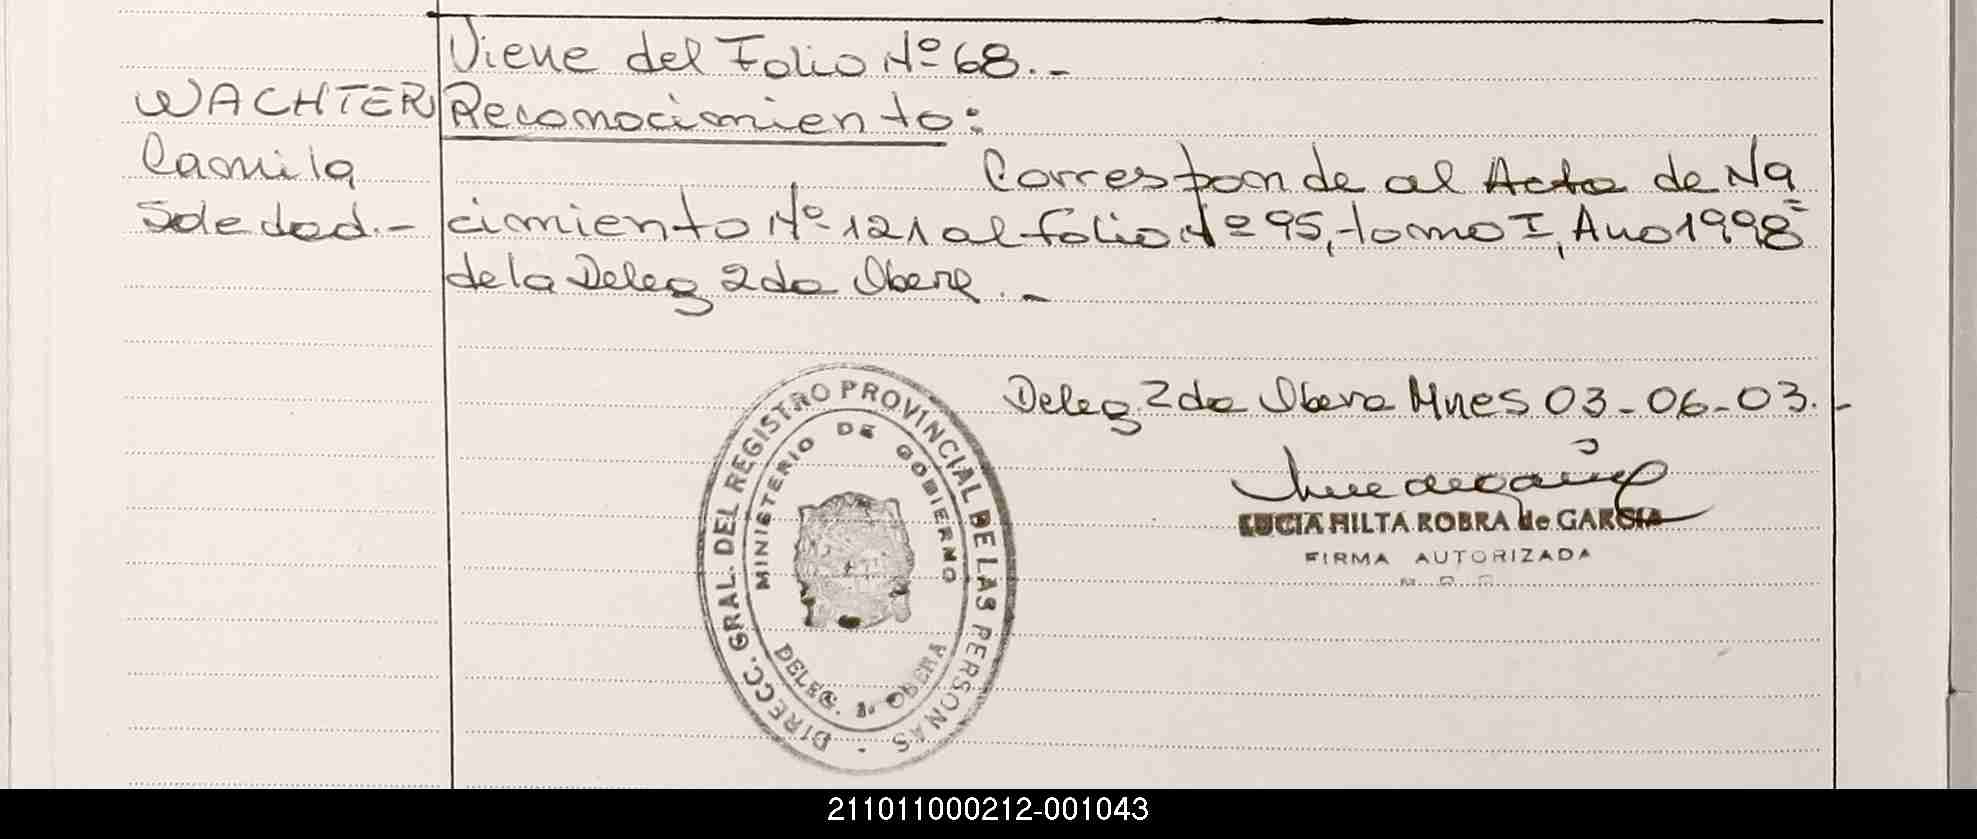 Viene del Folio Nº 68.-
WACHTER
Camila
Soledad.-
Reconocimiento:
Corresponde al Acta de Na
cimiento Nº 121 al folio Nº 95, tomo I, Año 1998=
de la Deleg 2da Obera.-
Deleg. 2da Obera Mnes 03-06-03.-
LUCIA HILTA ROBRA de GARCIA
FIRMA AUTORIZADA
DIRECC. GRAL. DEL REGISTRO PROVINCIAL DE LAS PERSONAS
MINISTERIO DE GOBIERNO
DELEG. 2ª OBERA
211011000212-001043